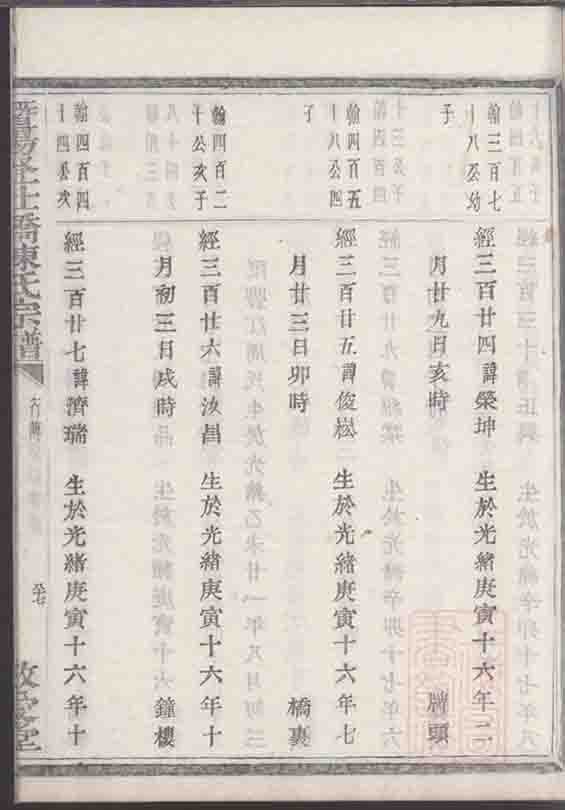 翰三百七
十八公幼
子
經三百廿四諱榮坤 生於光緒庚寅十六年二
月廿九日亥時 牌頭
翰四百五
十八公四
子
經三百廿五諱俊崧 生於光緒庚寅十六年七
月廿三日卯時 橋裏
翰四百二
十公亥子
經三百廿六諱汝昌 生於光緒庚寅十六年十
月初三日戌時 鐘樓
翰四百四
十四公次
經三百廿七諱濟瑞 生於光緒庚寅十六年十
橋陳氏宗譜